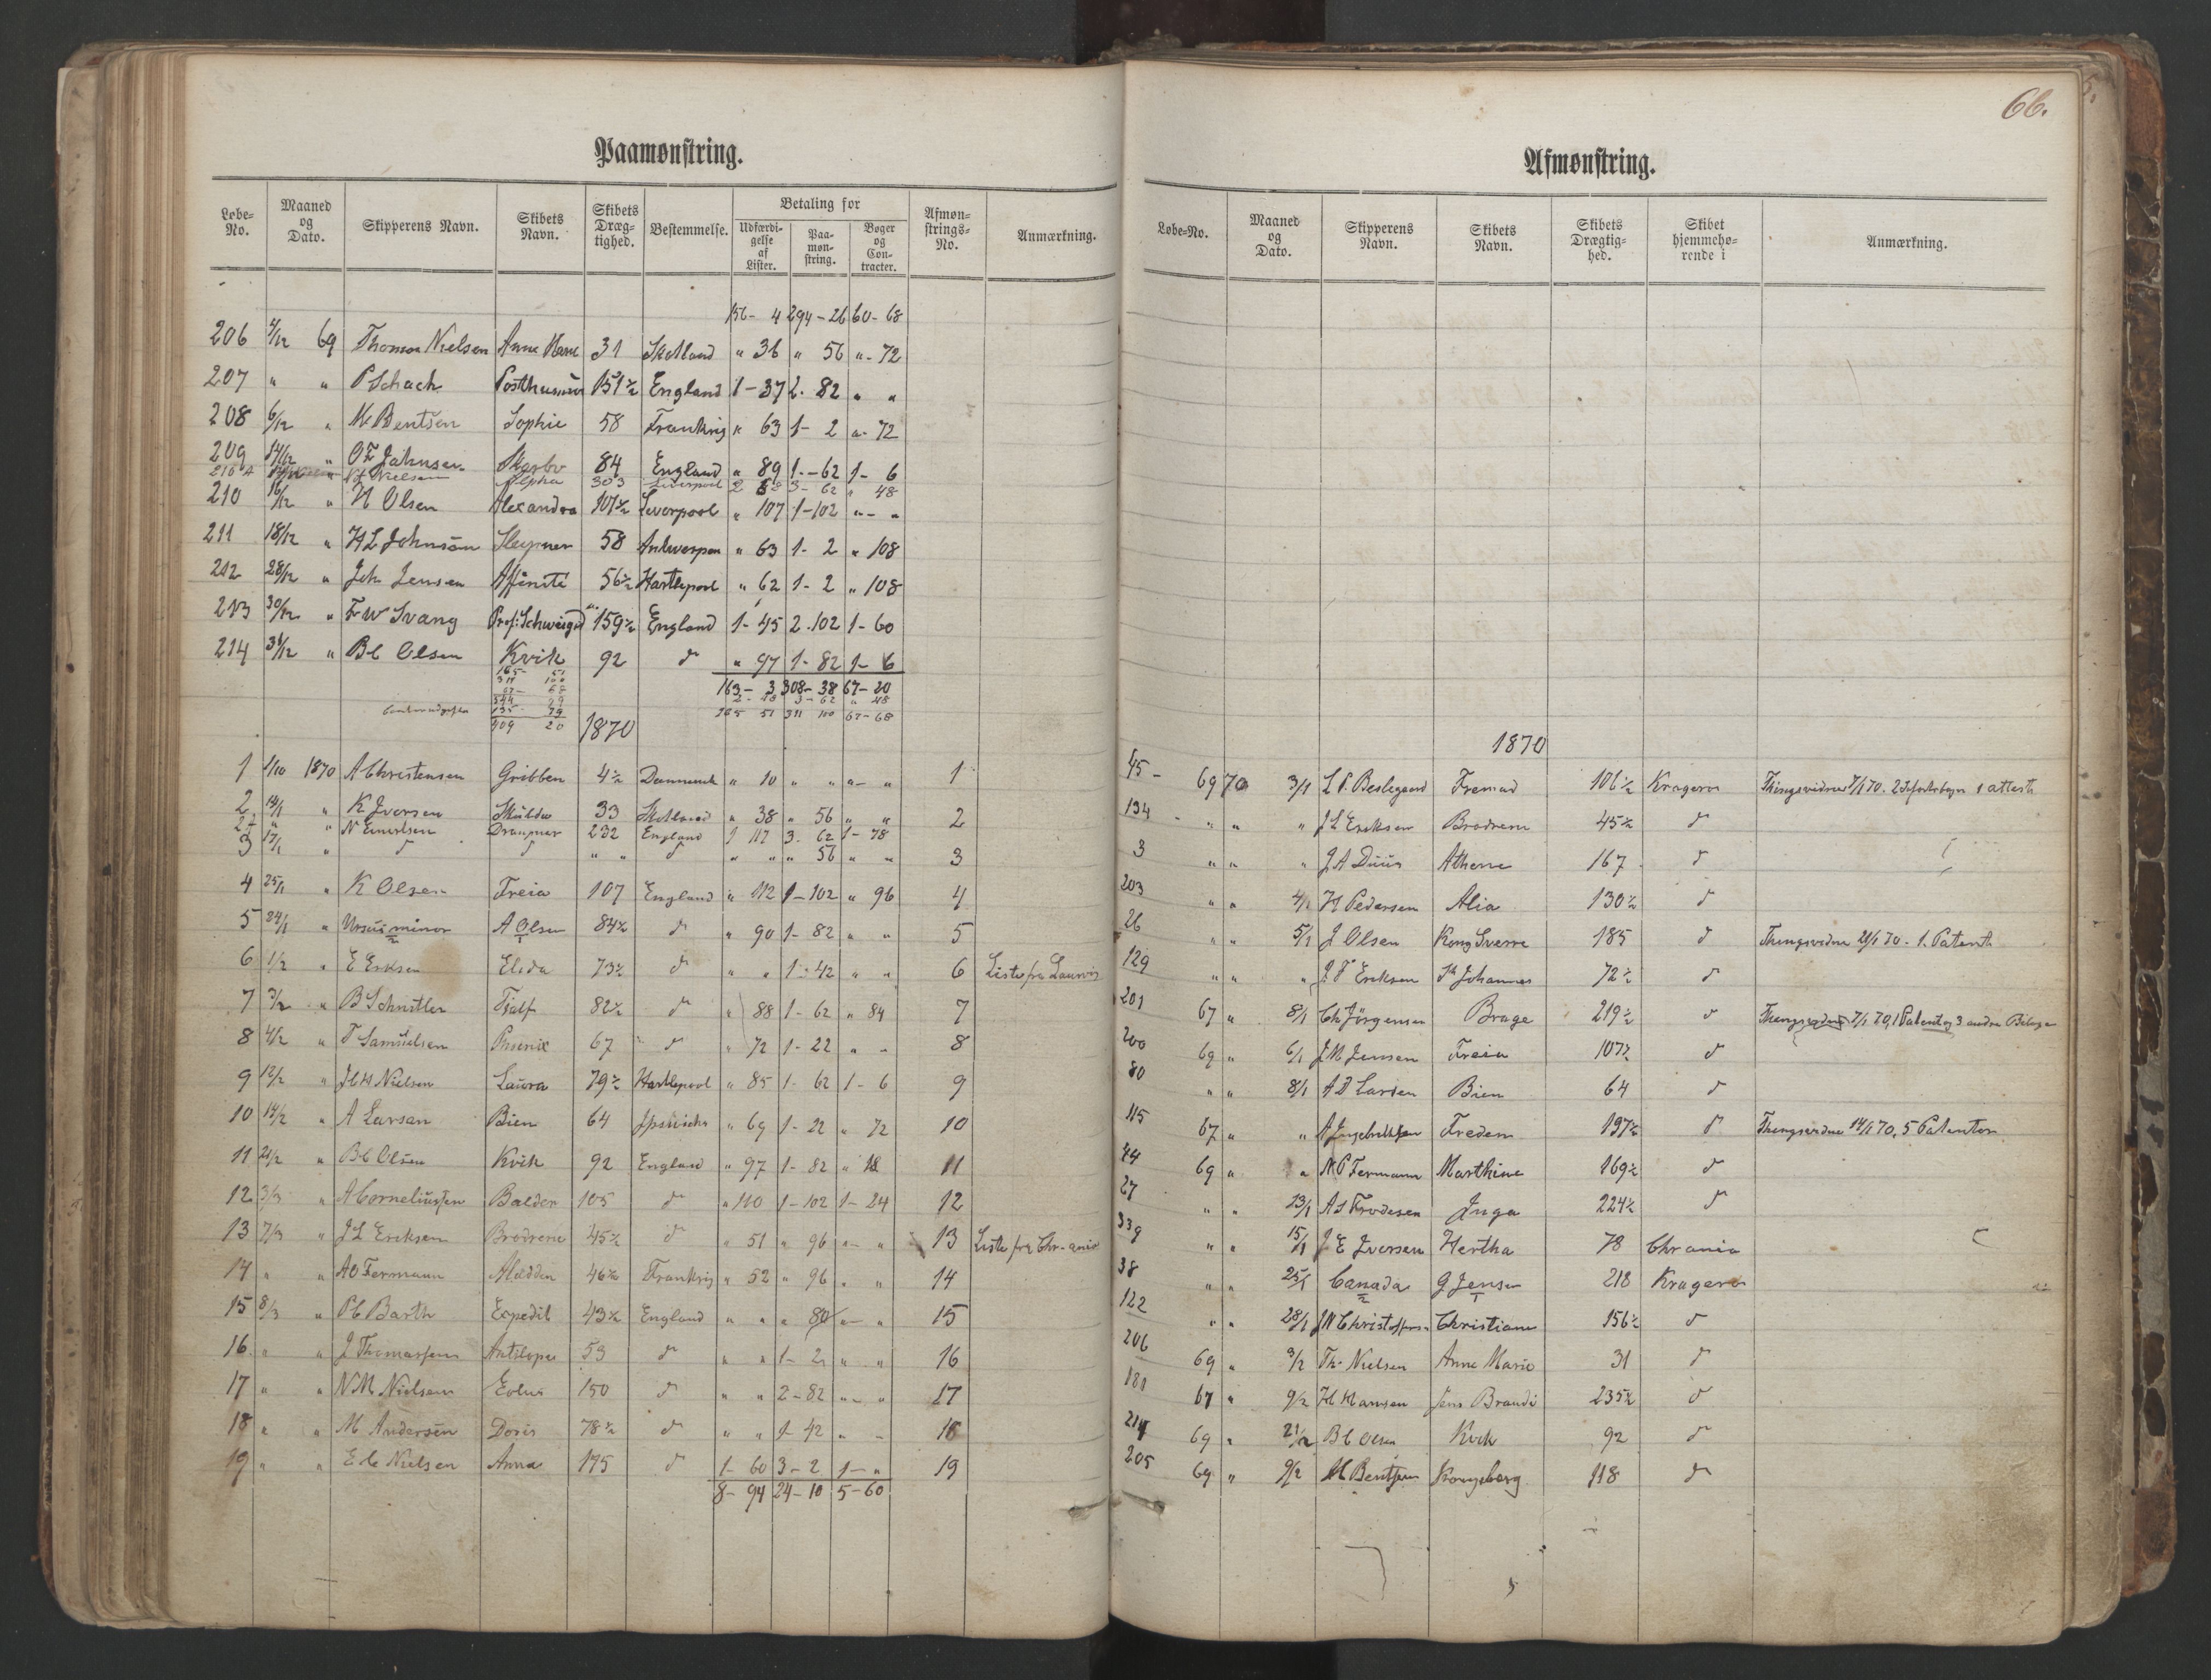 66.
Paamønstring.
Løbe-No. Maaned og Dato. Skipperens Navn. Skibets Navn. Skibets Dræg-tighed. Bestemmelse. Betaling for Udfærdi-gelse af Lister. Paa-møn-string. Bøger og Con-tracter. Afmøn-strings-No. Anmærkning.
156- 4 294-26 60-68
206 4/12 69 Thomas Nielsen Anne Marie 31 Skotland " 36 " 56 "-72
207 " " P Schach Posthumus 151½ England 1-37 2. 82 " "
208 6/12 " M Bentsen Sophie 58 Frankrig " 63 1- 2 "-72
209 14/12 " O F Johnsen 84 England " 89 1-62 1- 6
Nielsen Alpha 303 Liverpool 2 3- 62 " 48
210 16/12 " N Olsen Alexandra 107½ Liverpool " 107 1-102 "- "
211 18/12 " H L Johnsen Sleipner 58 Antwerpen " 63 1- 2 " 108
212 28/12 " Joh Jensen Affinité 56½ Hartlepool " 62 1- 2 " 108
213 30/12 " F W Svang Prof: Schweigaard 159½ England 1-45 2.102 1-60
214 31/12 " B C Olsen Kvik 92 d " 97 1- 82 1- 6
163- 3 308-38 67-20
2- 48 3- 62 " 48
165 51 311 100 67-68
165- 51
311 100
67- 68
544 29
909 20
1870
1 1/10 1870 A Christensen Gribben 4½ Danmark " 10 " " "- " 1
2 14/1 " K Iversen Skulda 33 Skotland " 38 " 56 " " 2
" " N Draupner 232 England 1 117 3- 62 1-78
3 17/1 " d d " " d " " " 56 " " 3
4 25/1 " K Olsen Freia 107 England " 112 1-102 " 96 4
5 24/1 " Ursus minor A Olsen 84½ d " 90 1- 82 " " 5
6 1/2 " E Eriksen Elida 73½ d " " 1-42 " " 6 Liste fra Laurvig
7 3/2 " B Schnitler Tjalf 82½ d " 88 1-62 " 84 7
8 4/2 " T Samuelsen Phoenix 67 d " 72 1-22 " " 8
9 12/2 " J C H Nielsen Laura 79½ Hartlepool " 85 1- 62 1- 6 9
10 14/2 " A Larsen Bien 64 Ipswich " 69 1-22 " 72 10
11 21/2 " B C Olsen Kvik 92 England " 97 1- 82 " 18 11
12 3/3 " A Corneliussen Balder 105 d " 110 1-102 1- 24 12
13 7/3 " J L Eriksen Brødrene 45½ d " 51 " 96 "- " 13 Liste fra Chr-ania
14 " " A O Fermann Aladdin 46½ Frankrig " 52 " 96 " " 14
15 8/3 " P C Barth Expedit 43½ England " " " 80 "- " 15
16 " " J Thomassen Antilope 53 d " " 1- 2 " " 16
17 " " N M Nielsen Eolus 150 d " " 2-82 "- " 17
18 " " M Andersen Doris 78½ d " " 1-42 " - 18
19 " " E C Nielsen Anna 175 d 1- 60 3- 2 1- " 19
8- 94 24-10 5-60
Afmønstring.
Løbe-No. Maaned og Dato. Skipperens Navn. Skibets Navn. Skibets Drægtig-hed. Skibet hjemmehø-rende i Anmærkning.
1870
45- 69 70 3/1 L P. Beslegaard Fremad 106½ Kragerø Thingsvidne 7/1 70. 1 attest
134 " " " J L Eriksen Brødrene 45½ d
3 " " " J A Duus Athene 167 d
203 " " 4/1 H Pedersen Alia 130½ d
26 " " 5/1 J Olsen Kong Sverre 185 d Thingsvidne 21/1 70 - 1. Patent
129 " " " J F Eriksen St Johannes 72½ d
201 67 " 8/1 Ch Jörgensen Brage 219½ d Thingsvidne 7/1 70, 1 Patent og 3 andre Bilage
200 69 " 6/1 J M Jensen Freia 107½ d
80 " " 8/1 A D Larsen Bien 64 d
115 67 " " A Ingebretsen Freden 197½ d Thingsvidne 14/1 70, 5 Patenter
44 69 " " N P Fermann Marthine 169½ d
27 " " 13/1 A S Frodesen Inga 224½ d
339 " " 15/1 J E Iversen Hertha 78 Chrania
38 " " 25/1 Canada G Jensen 218 Kragerø
122 " " 28/1 J N Christoffersen Christiane 156½ d
206 69 " 3/2 Th. Nielsen Anne Marie 31 d
181 67 " 9/2 H Hansen Jens Brandi 235½ d
214 69 " 21/2 B C Olsen Kvik 92 d
205 69 " 9/2 M Bentsen Kongsberg 118 d